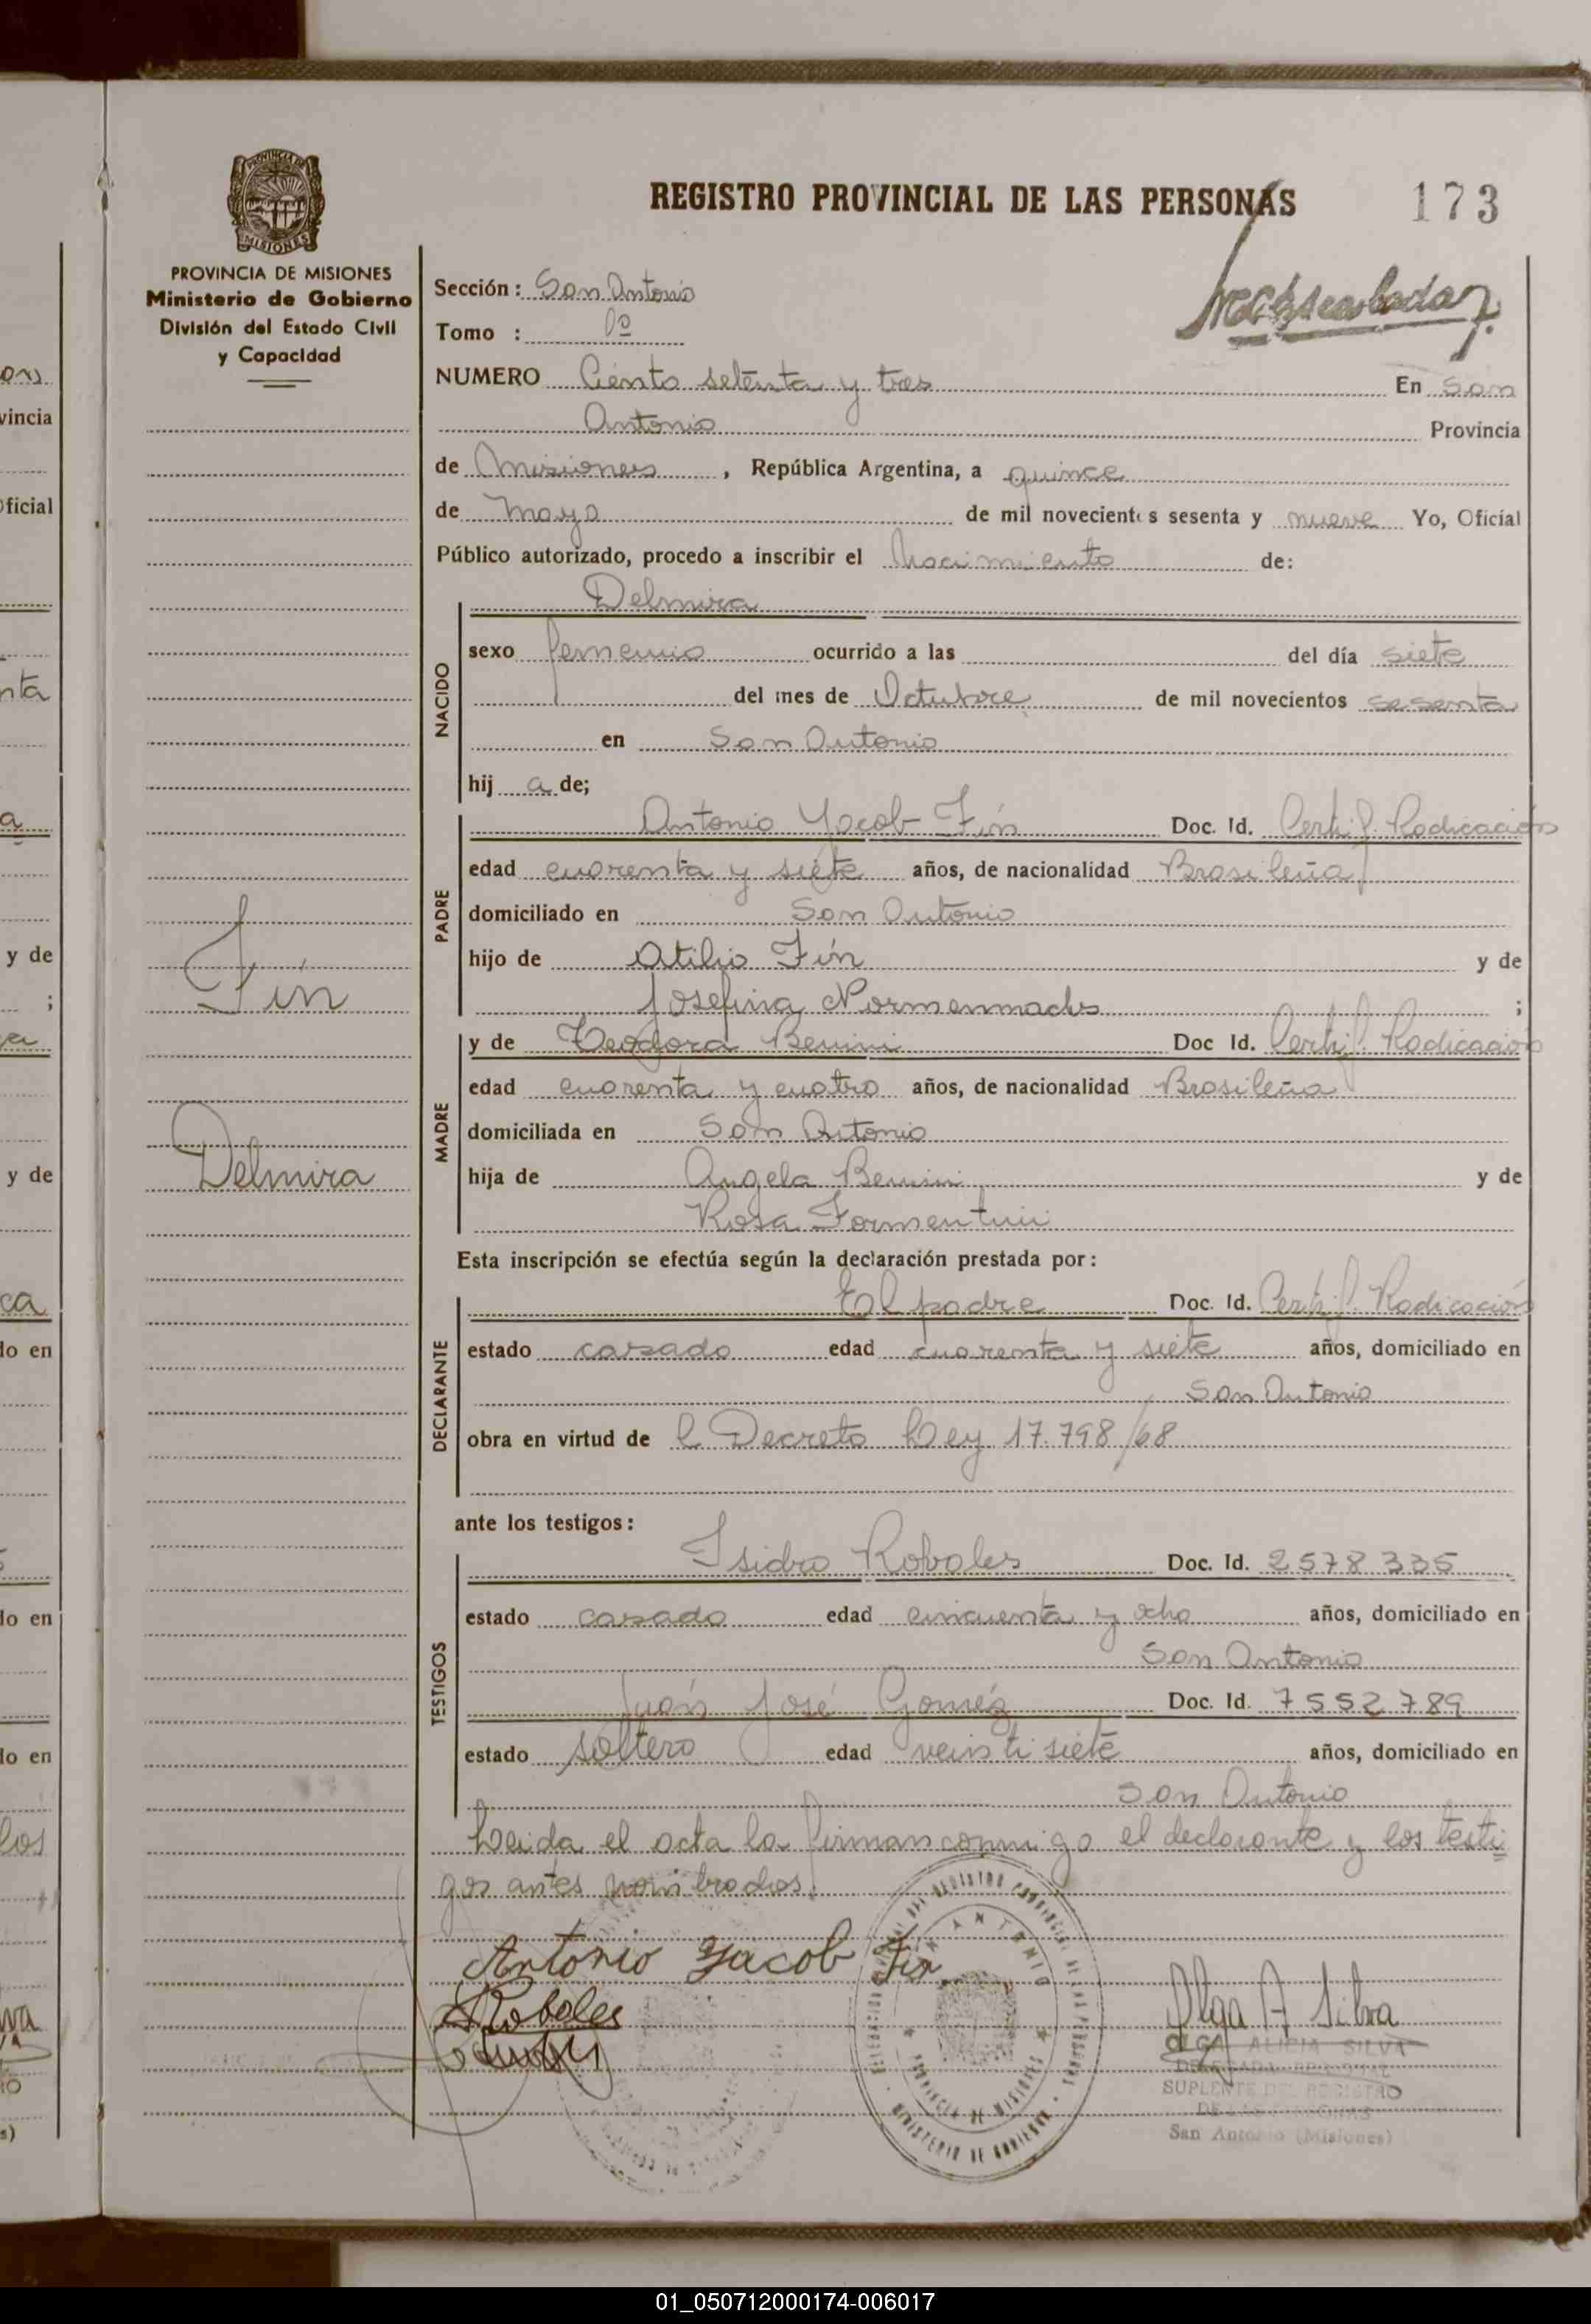 REGISTRO PROVINCIAL DE LAS PERSONAS 173
PROVINCIA DE MISIONES
Ministerio de Gobierno
División del Estado Civil
y Capacidad
Sección: San Antonio
Tomo : 1º
NUMERO Ciento setenta y tres En San
Antonio Provincia
de Misiones, República Argentina, a quince
de Mayo de mil novecientos sesenta y nueve Yo, Oficial
Público autorizado, procedo a inscribir el Nacimiento de:
Delmira
NACIDO
sexo femenino ocurrido a las del día siete
del mes de Octubre de mil novecientos sesenta
en San Antonio
hij a de;
PADRE
Antonio Yacob Fin Doc. Id. Certif. Radicación
edad cuarenta y siete años, de nacionalidad Brasileña
domiciliado en San Antonio
hijo de Atilio Fin y de
Josefina ;
MADRE
y de Teodora Benini Doc Id. Certif. Radicación
edad cuarenta y cuatro años, de nacionalidad Brasileña
domiciliada en San Antonio
hija de Angela Benini y de
Rosa Formentini
Fin
Delmira
Esta inscripción se efectúa según la declaración prestada por:
DECLARANTE
El padre Doc. Id. Certif. Radicación
estado casado edad cuarenta y siete años, domiciliado en
San Antonio
obra en virtud de l Decreto Ley 17.798/68
ante los testigos:
TESTIGOS
Isidro Robales Doc. Id. 2578335
estado casado edad cincuenta y ocho años, domiciliado en
San Antonio
Juán José Goméz Doc. Id. 7552789
estado soltero edad veinti siete años, domiciliado en
San Antonio
Leida el acta la firman conmigo el declarante y los testi
gos antes nombrados.
Antonio Yacob Fin
Robales
Olga A Silva
OLGA ALICIA SILVA
SUPLENTE DEL REGISTRO
DE LAS PERSONAS
San Antonio (Misiones)
SAN ANTONIO
PROVINCIA DE MISIONES
MINISTERIO DE GOBIERNO
01_050712000174-006017